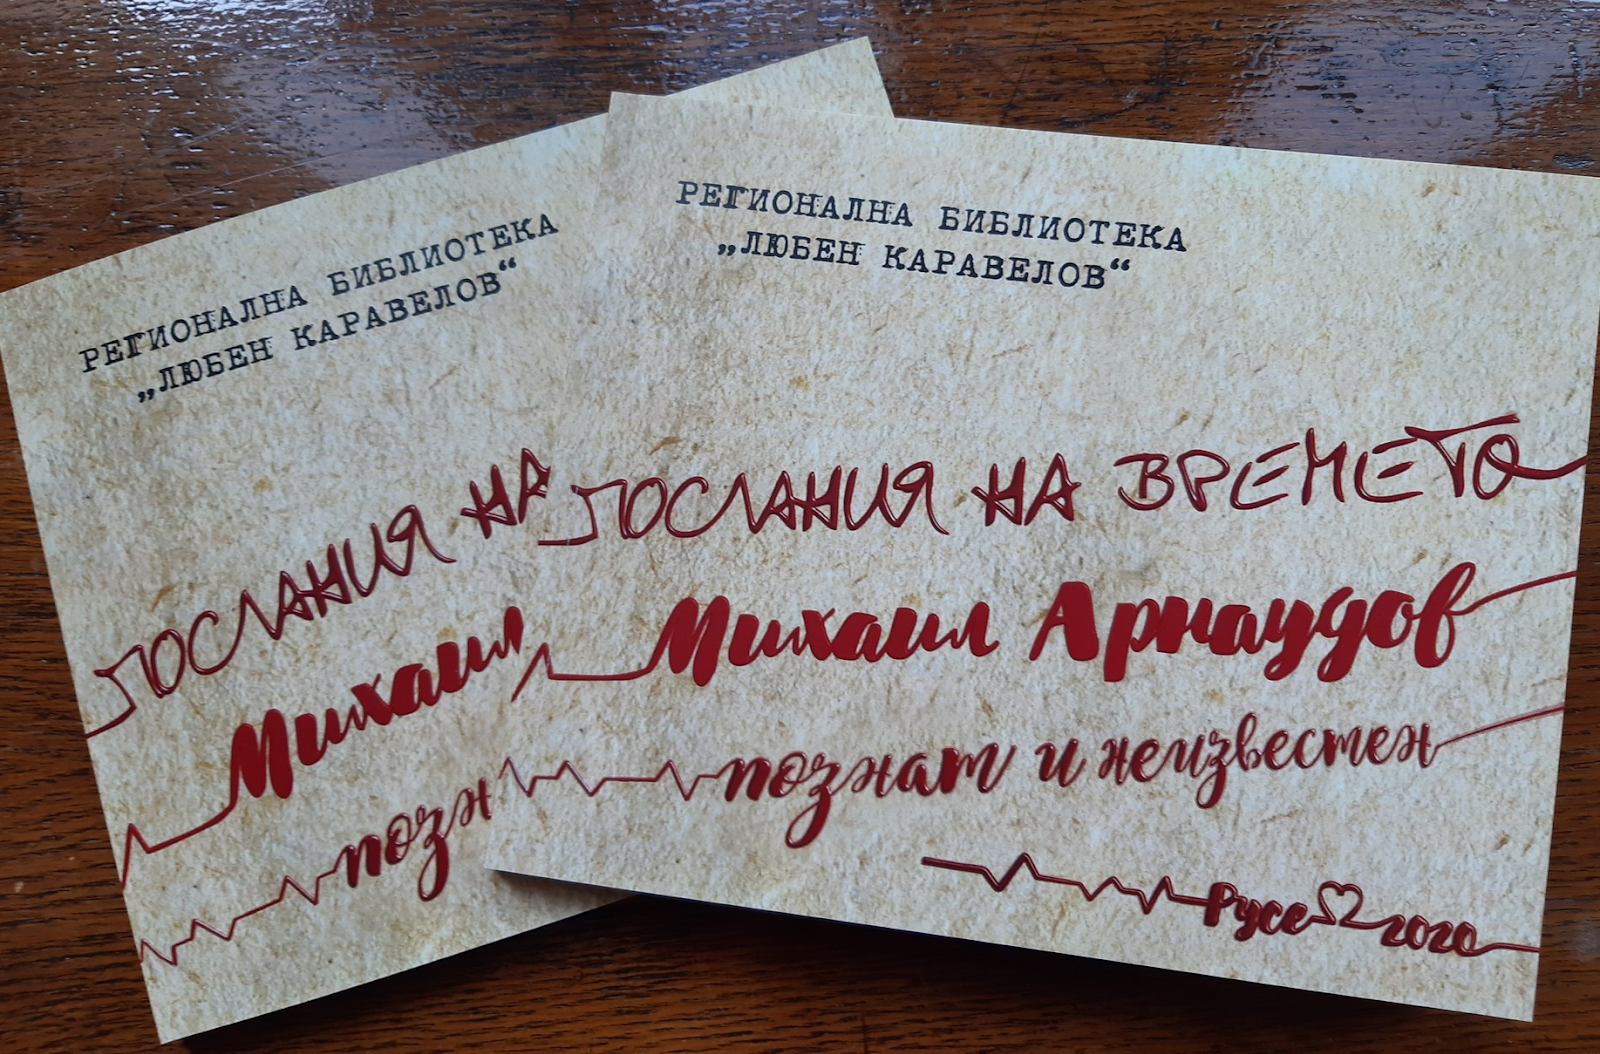 РЕГИОНАЛНА БИБЛИОТЕКА
„ЛЮБЕН КАРАВЕЛОВ“
ПОСЛАНИЯ НА
Михаил
позн
РЕГИОНАЛНА БИБЛИОТЕКА
„ЛЮБЕН КАРАВЕЛОВ“
ПОСЛАНИЯ НА ВРЕМЕТО
Михаил Арнаудов
познат и неизвестен
Русе 2020